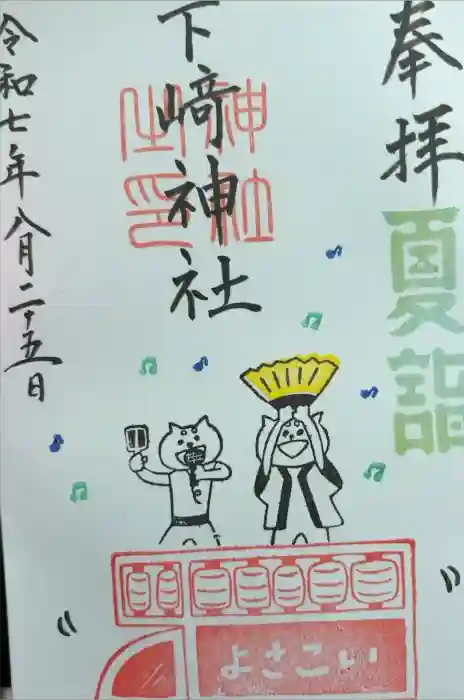 奉拝
夏詣
下﨑神社
神社
之印
令和七年八月二十五日
よさこい